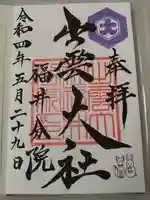 奉拝
出雲大社
福井分院
令和四年五月二十九日